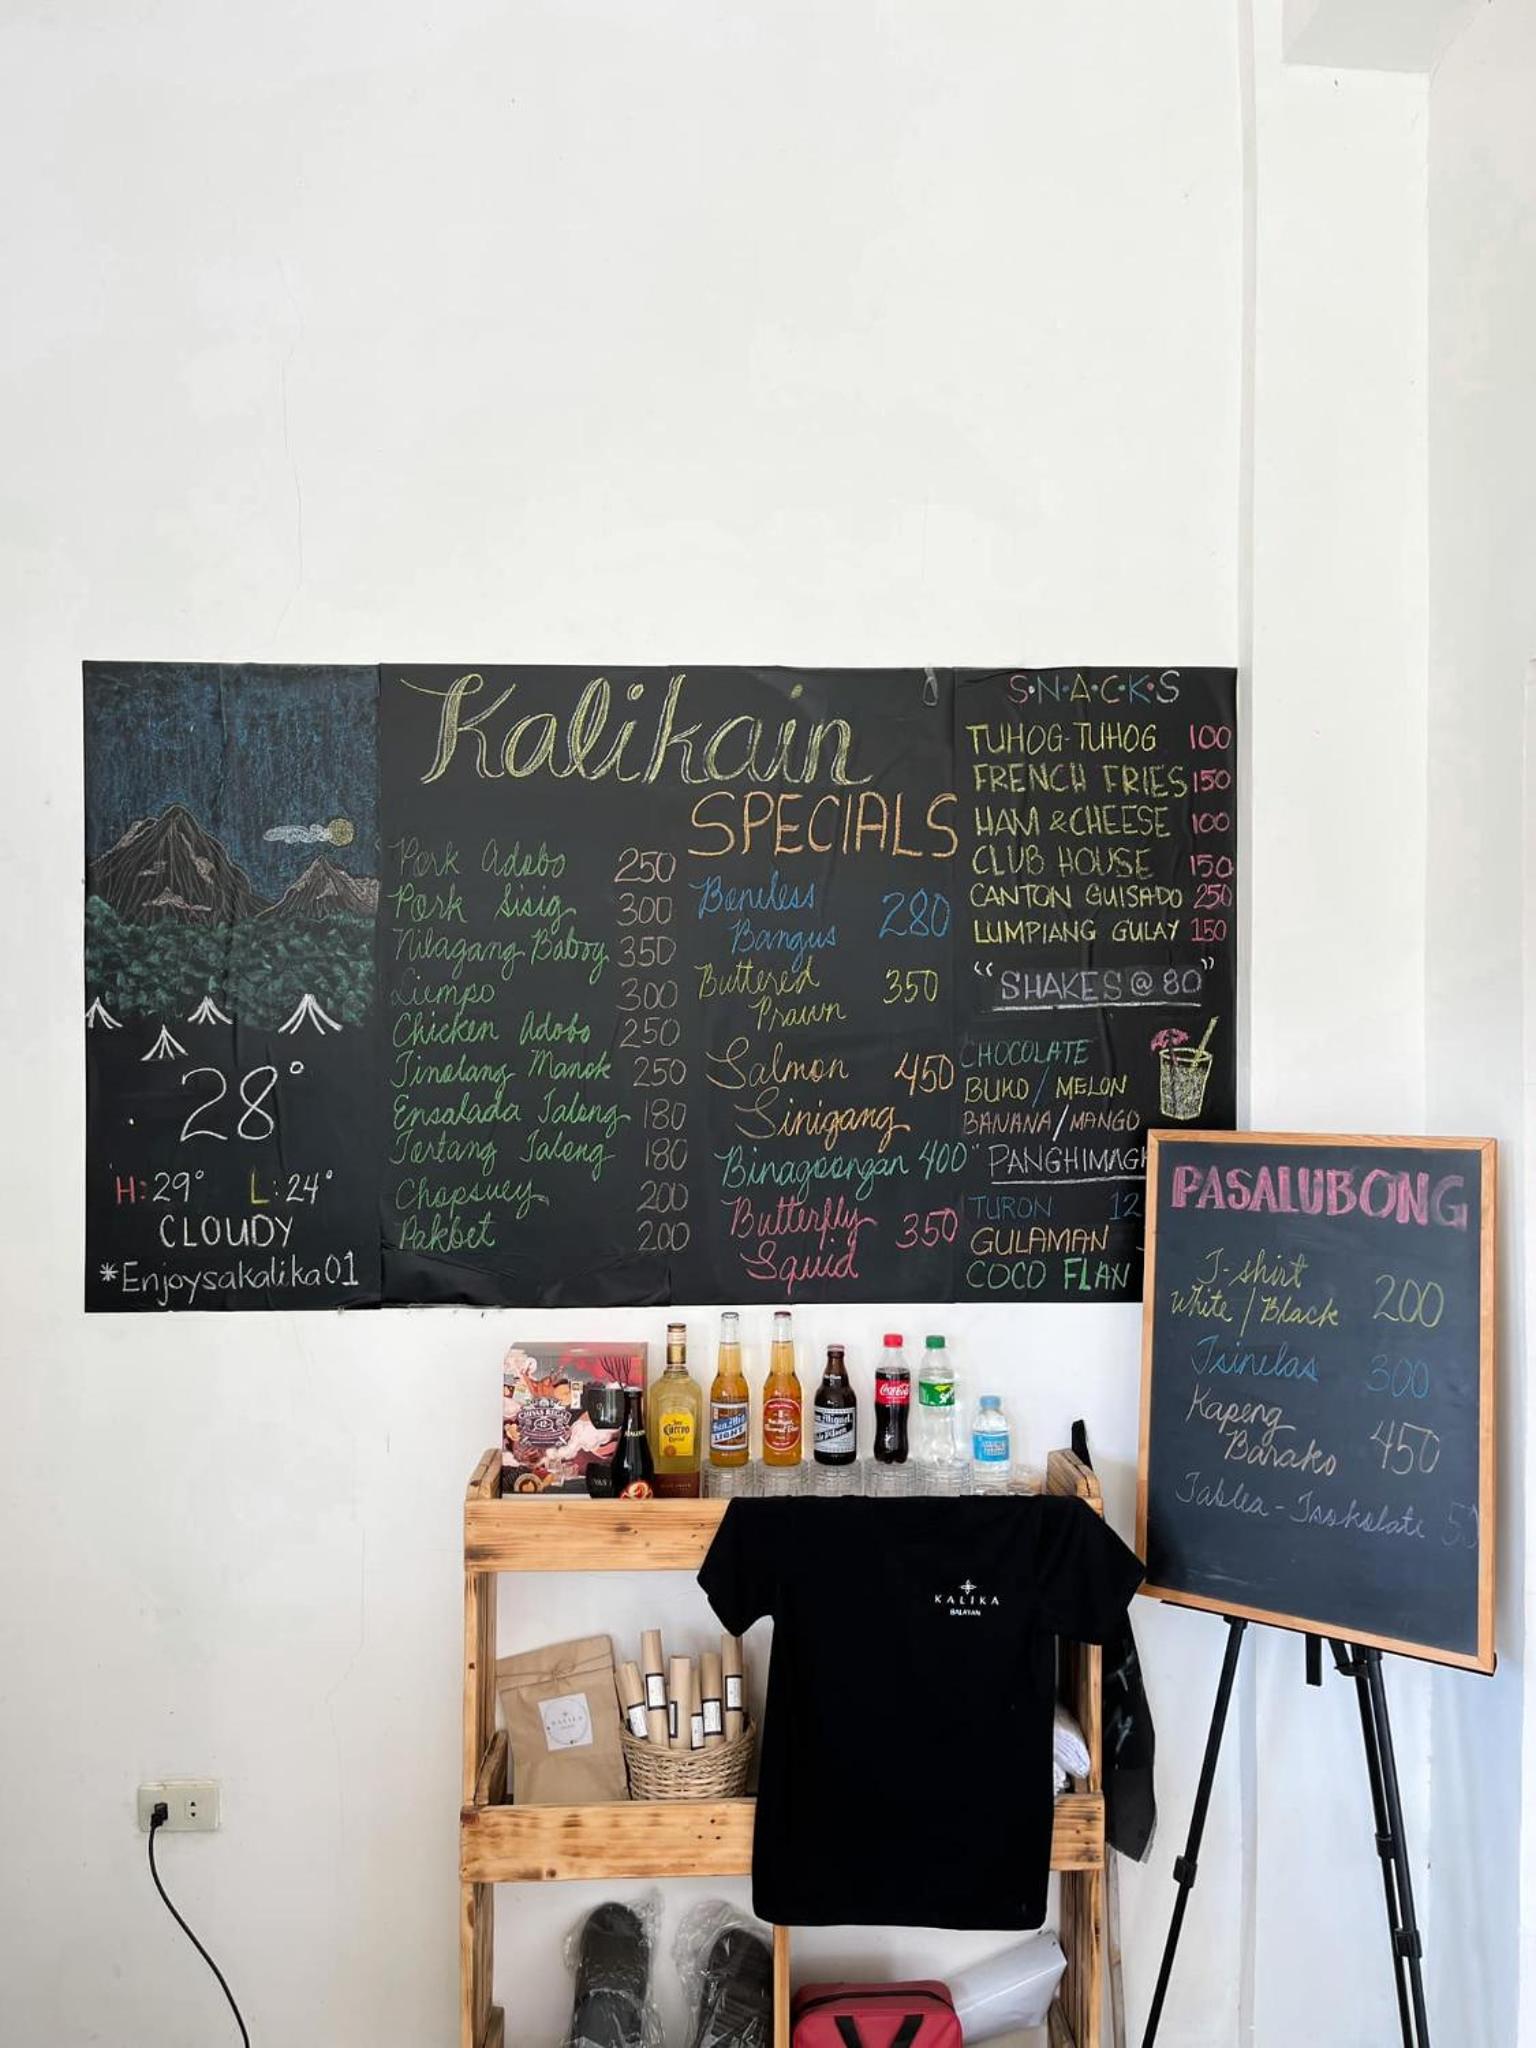 Kalikain
SPECIALS
Pork Adobo 250
Pork Sisig 300
Nilagang Baboy 350
Liempo 300
Chicken Adobo 250
Tinolang Manok 250
Ensalada Talong 180
Tortang Talong 180
Chopsuey 200
Pakbet 200
Boneless
Bangus 280
Buttered
Prawn 350
Salmon 450
Sinigang
Binagoongan 400
Butterfly 350
Squid
S•N•A•C•K•S
TUHOG-TUHOG 100
FRENCH FRIES 150
HAM & CHEESE 100
CLUB HOUSE 150
CANTON GUISADO 250
LUMPIANG GULAY 150
"SHAKES @ 80"
CHOCOLATE
BUKO / MELON
BANANA / MANGO
"PANGHIMAG
TURON 12
GULAMAN
COCO FLAN
28°
H: 29° L: 24°
CLOUDY
*Enjoysakalika01
PASALUBONG
T-shirt
White / Black 200
Tsinelas 300
Kapeng
Barako 450
Tablea - Tsokolate 50
CHIVAS REGAL
12
Jose
Cuervo
Especial
San Mig
LIGHT
San Miguel
Pale Pilsen
Coca-Cola
Sprite
KALIKA
BALAYAN
KALIKA